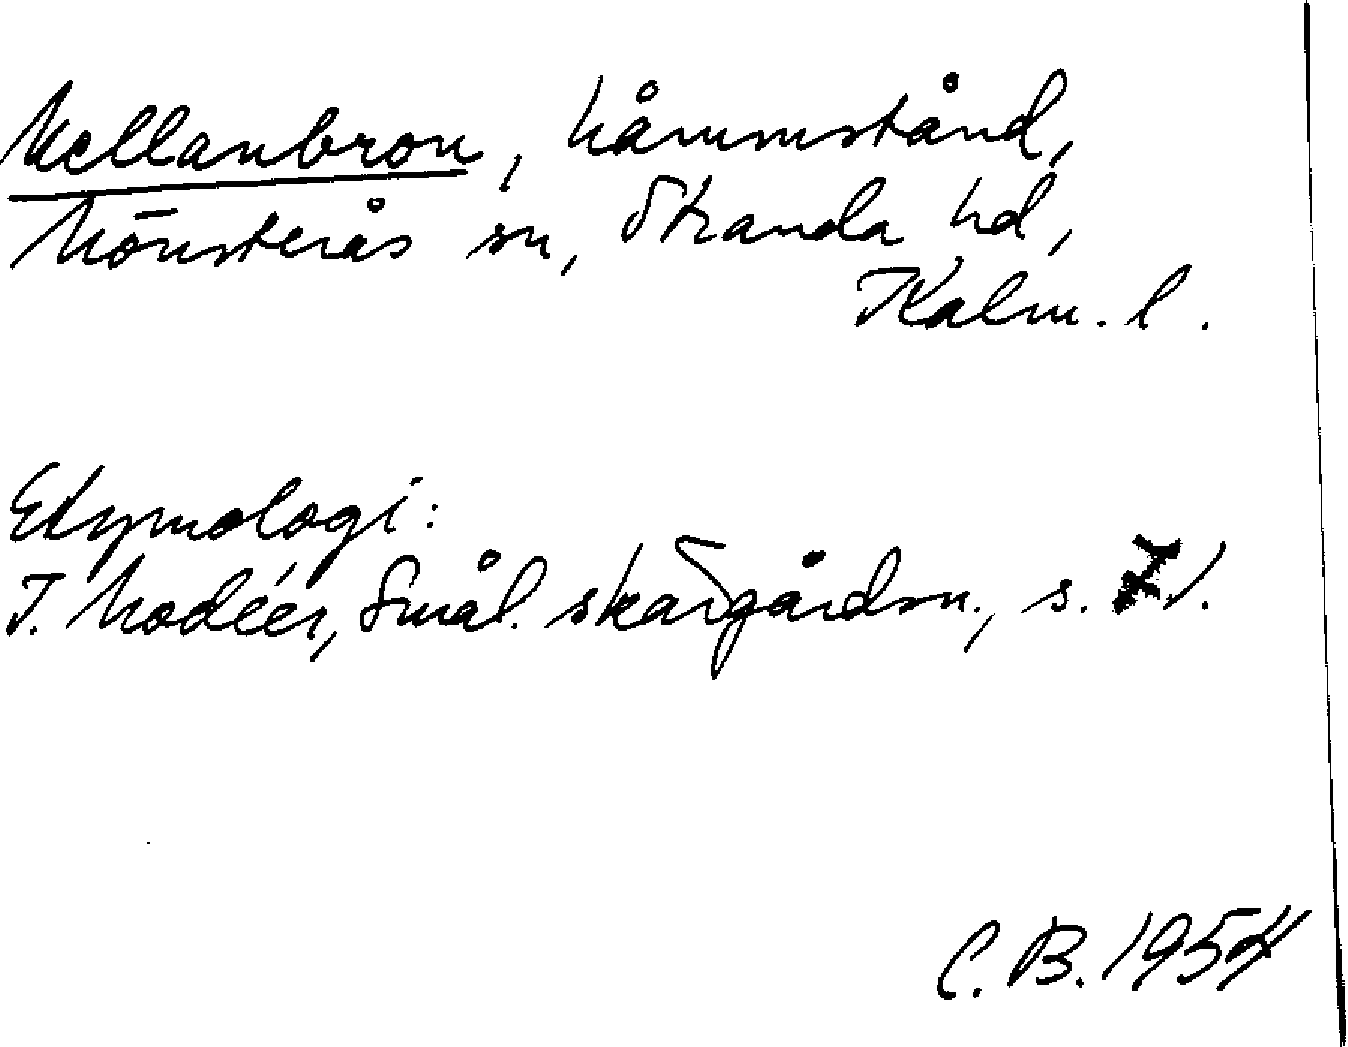 Mellanbron, hämmstånd,
Mönsterås sn, Stranda hd,
Kalm. l.
Etymologi:
I. Modéer, Smål. skärgårdsn., s. 71.
C. B. 1954